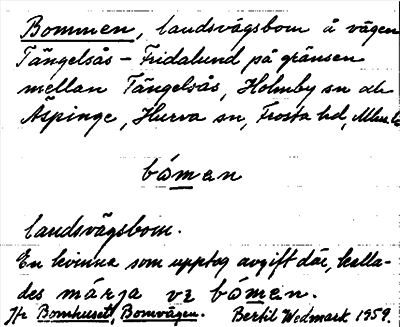 Bommen, landsvägsbom å vägen
Tängelsås – Fridalund på gränsen
mellan Tängelsås, Holmby sn och
Äspinge, Hurva sn, Frosta hd,
bómen
landsvägsbom.
En kvinna som upptog avgift där, kalla-
des märja vz bómen.
Jfr Bomhuset, Bomvägen. Bertil Wedmark 1959.